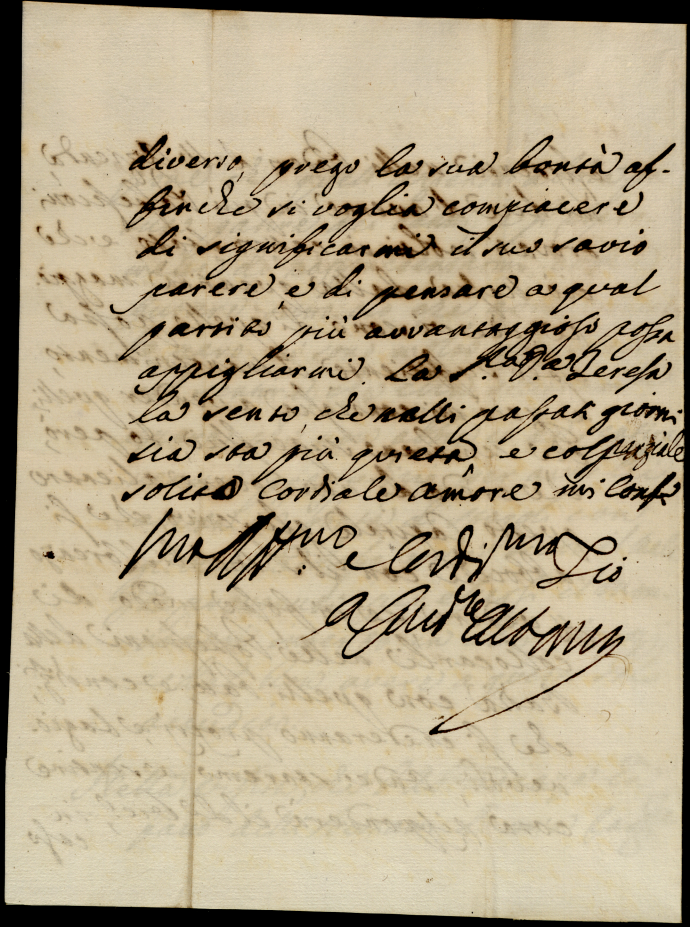 diverso, prego la sua bontà af-
finche si voglia compiacere
di significarmi il suo savio
parere, e di pensare a qual
partito più avvantaggioso possa
appigliarmi. La S.ra D.a Teresa
la sento, che nelli passati giorni
sia sta più quieta, e col speziale
solito cordiale amore mi conf.o
suo Aff.mo e Cord.mo Zio
Albani